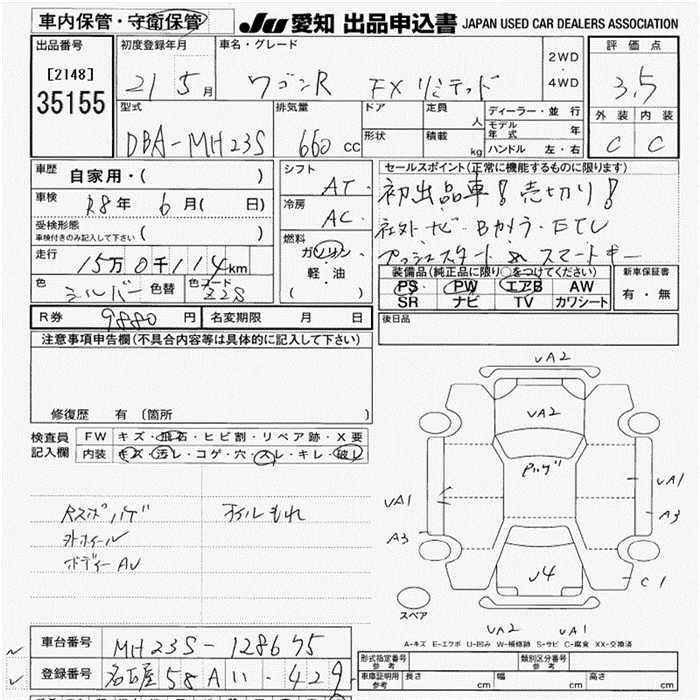 車内保管・守衛保管
JU 愛知 出品申込書 JAPAN USED CAR DEALERS ASSOCIATION
出品番号
[2148]
35155
初度登録年月
21 5月
車名・グレード
ワゴンR FXリミテッド
2WD
・
4WD
評価点
3.5
外装 内装
C C
型式
DBA-MH23S
排気量
660 cc
ドア
形状
定員 人
積載 kg
ディーラー・並行
モデル年式 年
ハンドル 左・右
車歴
自家用・( )
車検
R8年 6月( 日)
受検形態
車検付きのみ記入して下さい ( )
走行
15万0千114km
色
シルバー
色替
色コード
Z2S
シフト
AT
冷房
AC
燃料
ガソリン
軽・油
( )
セールスポイント(正常に機能するものに限ります)
初出品車!売切り!
社外ナビ・Bカメラ・ETC
プッシュスタート & スマートキー
装備品(純正品に限り○をつけてください)
PS PW エアB AW
SR ナビ TV カワシート
新車保証書
有・無
R券 9880円
名変期限 月 日
後日品
注意事項申告欄(不具合内容等は具体的に記入して下さい)
修復歴 有〔箇所 〕
検査員
記入欄
FW キズ・飛石・ヒビ割・リペア跡・X要
内装 キズ・汚レ・コゲ・穴・スレ・キレ・破レ
Rスポハゲ オイルもれ
外ホイール
ボディーAU
UA2
UA2
Pハゲ
UA1
A3
UA1
A3
U4
C1
スペア
UA2 UA1
A-キズ E-エクボ U-凹み W-補修跡 S-サビ C-腐食 XX-交換済
車台番号
MH23S-128675
登録番号
名古屋 58A い・429
形式指定番号
参考
類別区分番号
参考
車庫証明用
参考
長さ cm
幅 cm
高さ cm